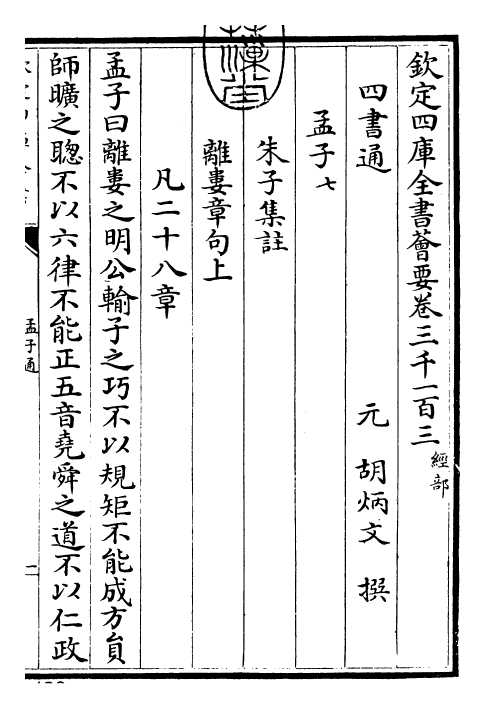 欽定四庫全書薈要卷三千一百三
經部
四書通
元 胡炳文 撰
孟子七
朱子集註
離婁章句上
凡二十八章
孟子曰離婁之明公輸子之巧不以規矩不能成方員
師曠之聰不以六律不能正五音堯舜之道不以仁政
孟子通
一